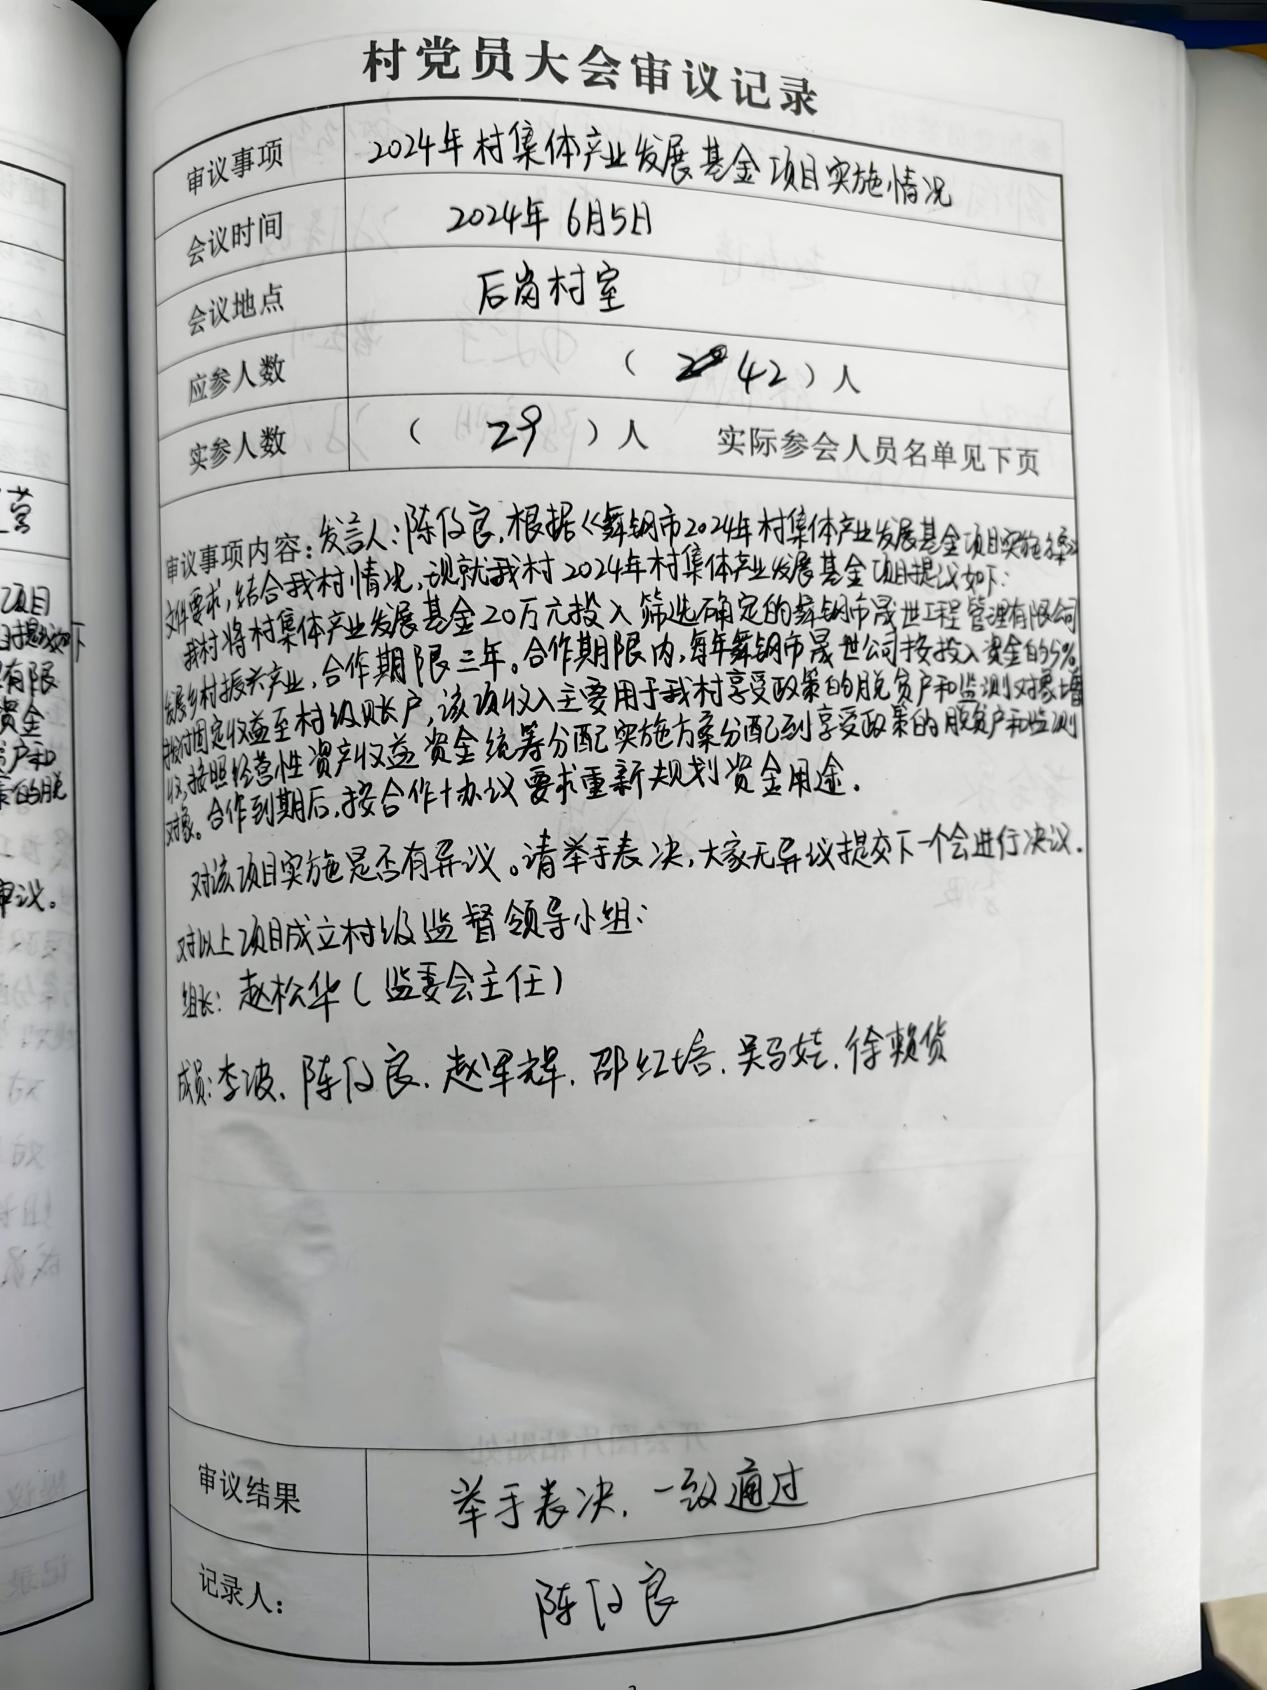 村党员大会审议记录
审议事项 2024年村集体产业发展基金项目实施情况
会议时间 2024年6月5日
会议地点 后岗村室
应参人数 ( 42 ) 人
实参人数 ( 29 ) 人 实际参会人员名单见下页
审议事项内容: 发言人:陈良,根据《舞钢市2024年村集体产业发展基金项目实施方案》
文件要求,结合我村情况,现就我村2024年村集体产业发展基金项目提议如下:
我村将村集体产业发展基金20万元投入筛选确定的舞钢市晟世工程管理有限公司
发展乡村振兴产业,合作期限三年。合作期限内,每年舞钢市晟世公司按投入资金的5%
拨付固定收益至村级账户,该项收入主要用于我村享受政策的脱贫户和监测对象增
收,按照经营性资产收益资金统筹分配实施方案分配到享受政策的脱贫户和监测
对象。合作到期后,按合作协议要求重新规划资金用途.
对该项目实施是否有异议。请举手表决,大家无异议提交下一个会进行决议.
对以上项目成立村级监督领导小组:
组长:赵松华(监委会主任)
成员:李波.陈良.赵军辉.邵红培.吴马.徐赖货
审议结果 举手表决,一致通过
记录人: 陈良
项目
有限
资金
户和
的脱
审议。